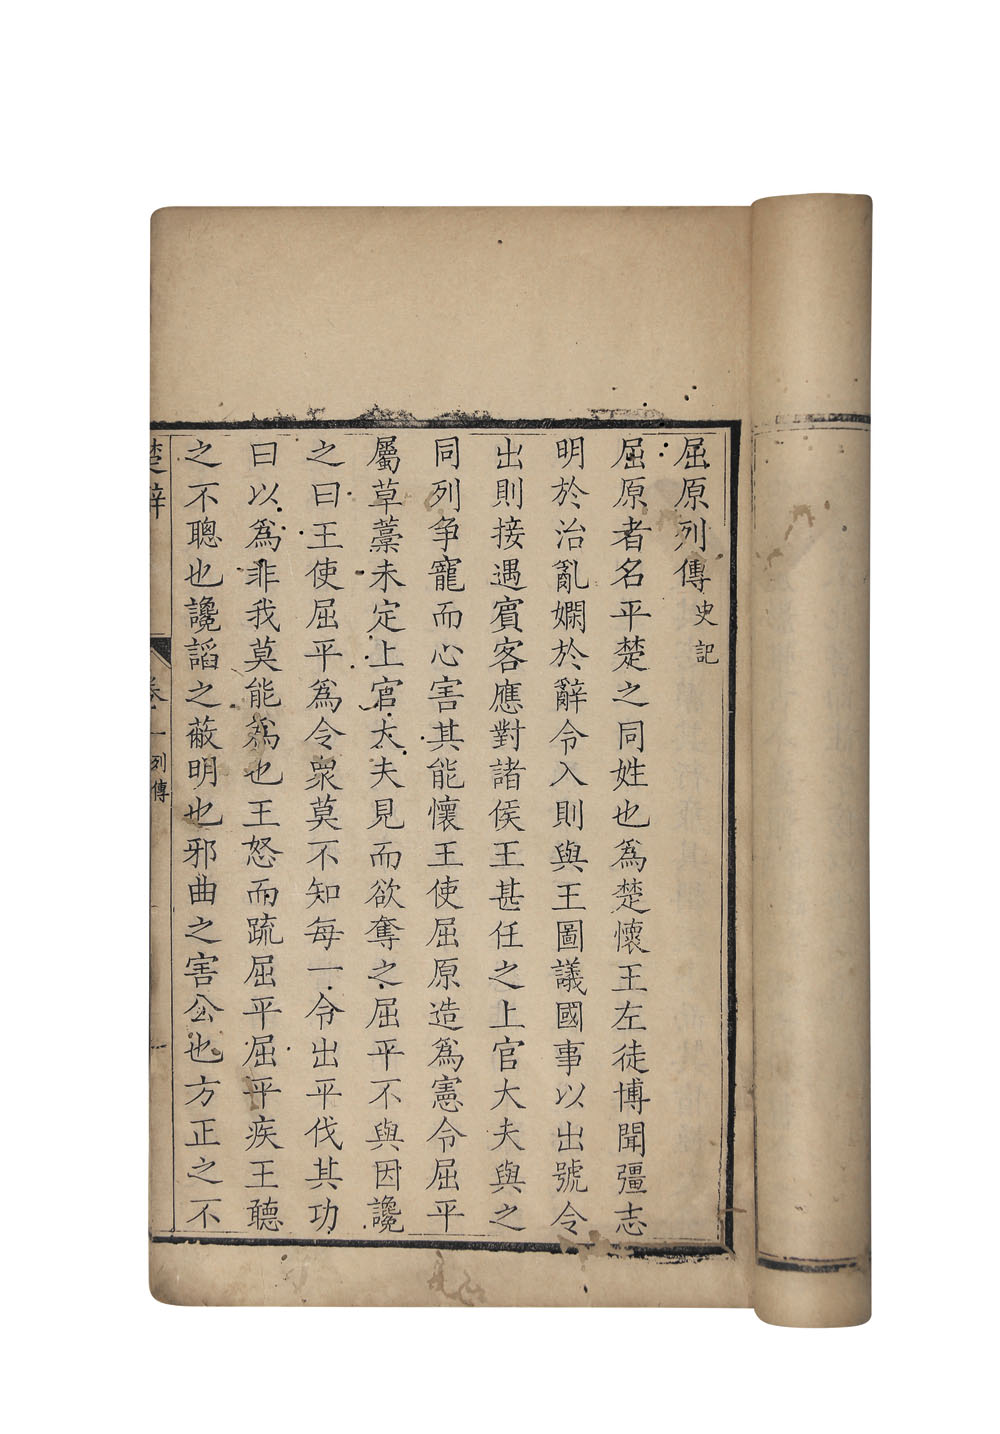 屈原列傳史記
屈原者名平楚之同姓也爲楚懷王左徒博聞彊志
明於治亂嫺於辭令入則與王圖議國事以出號令
出則接遇賓客應對諸侯王甚任之上官大夫與之
同列争寵而心害其能懷王使屈原造爲憲令屈平
屬草藁未定上官大夫見而欲奪之屈平不與因讒
之曰王使屈平爲令衆莫不知每一令出平伐其功
曰以爲非我莫能爲也王怒而疏屈平屈平疾王聽
之不聰也讒謟之蔽明也邪曲之害公也方正之不
楚辭 卷一列傳